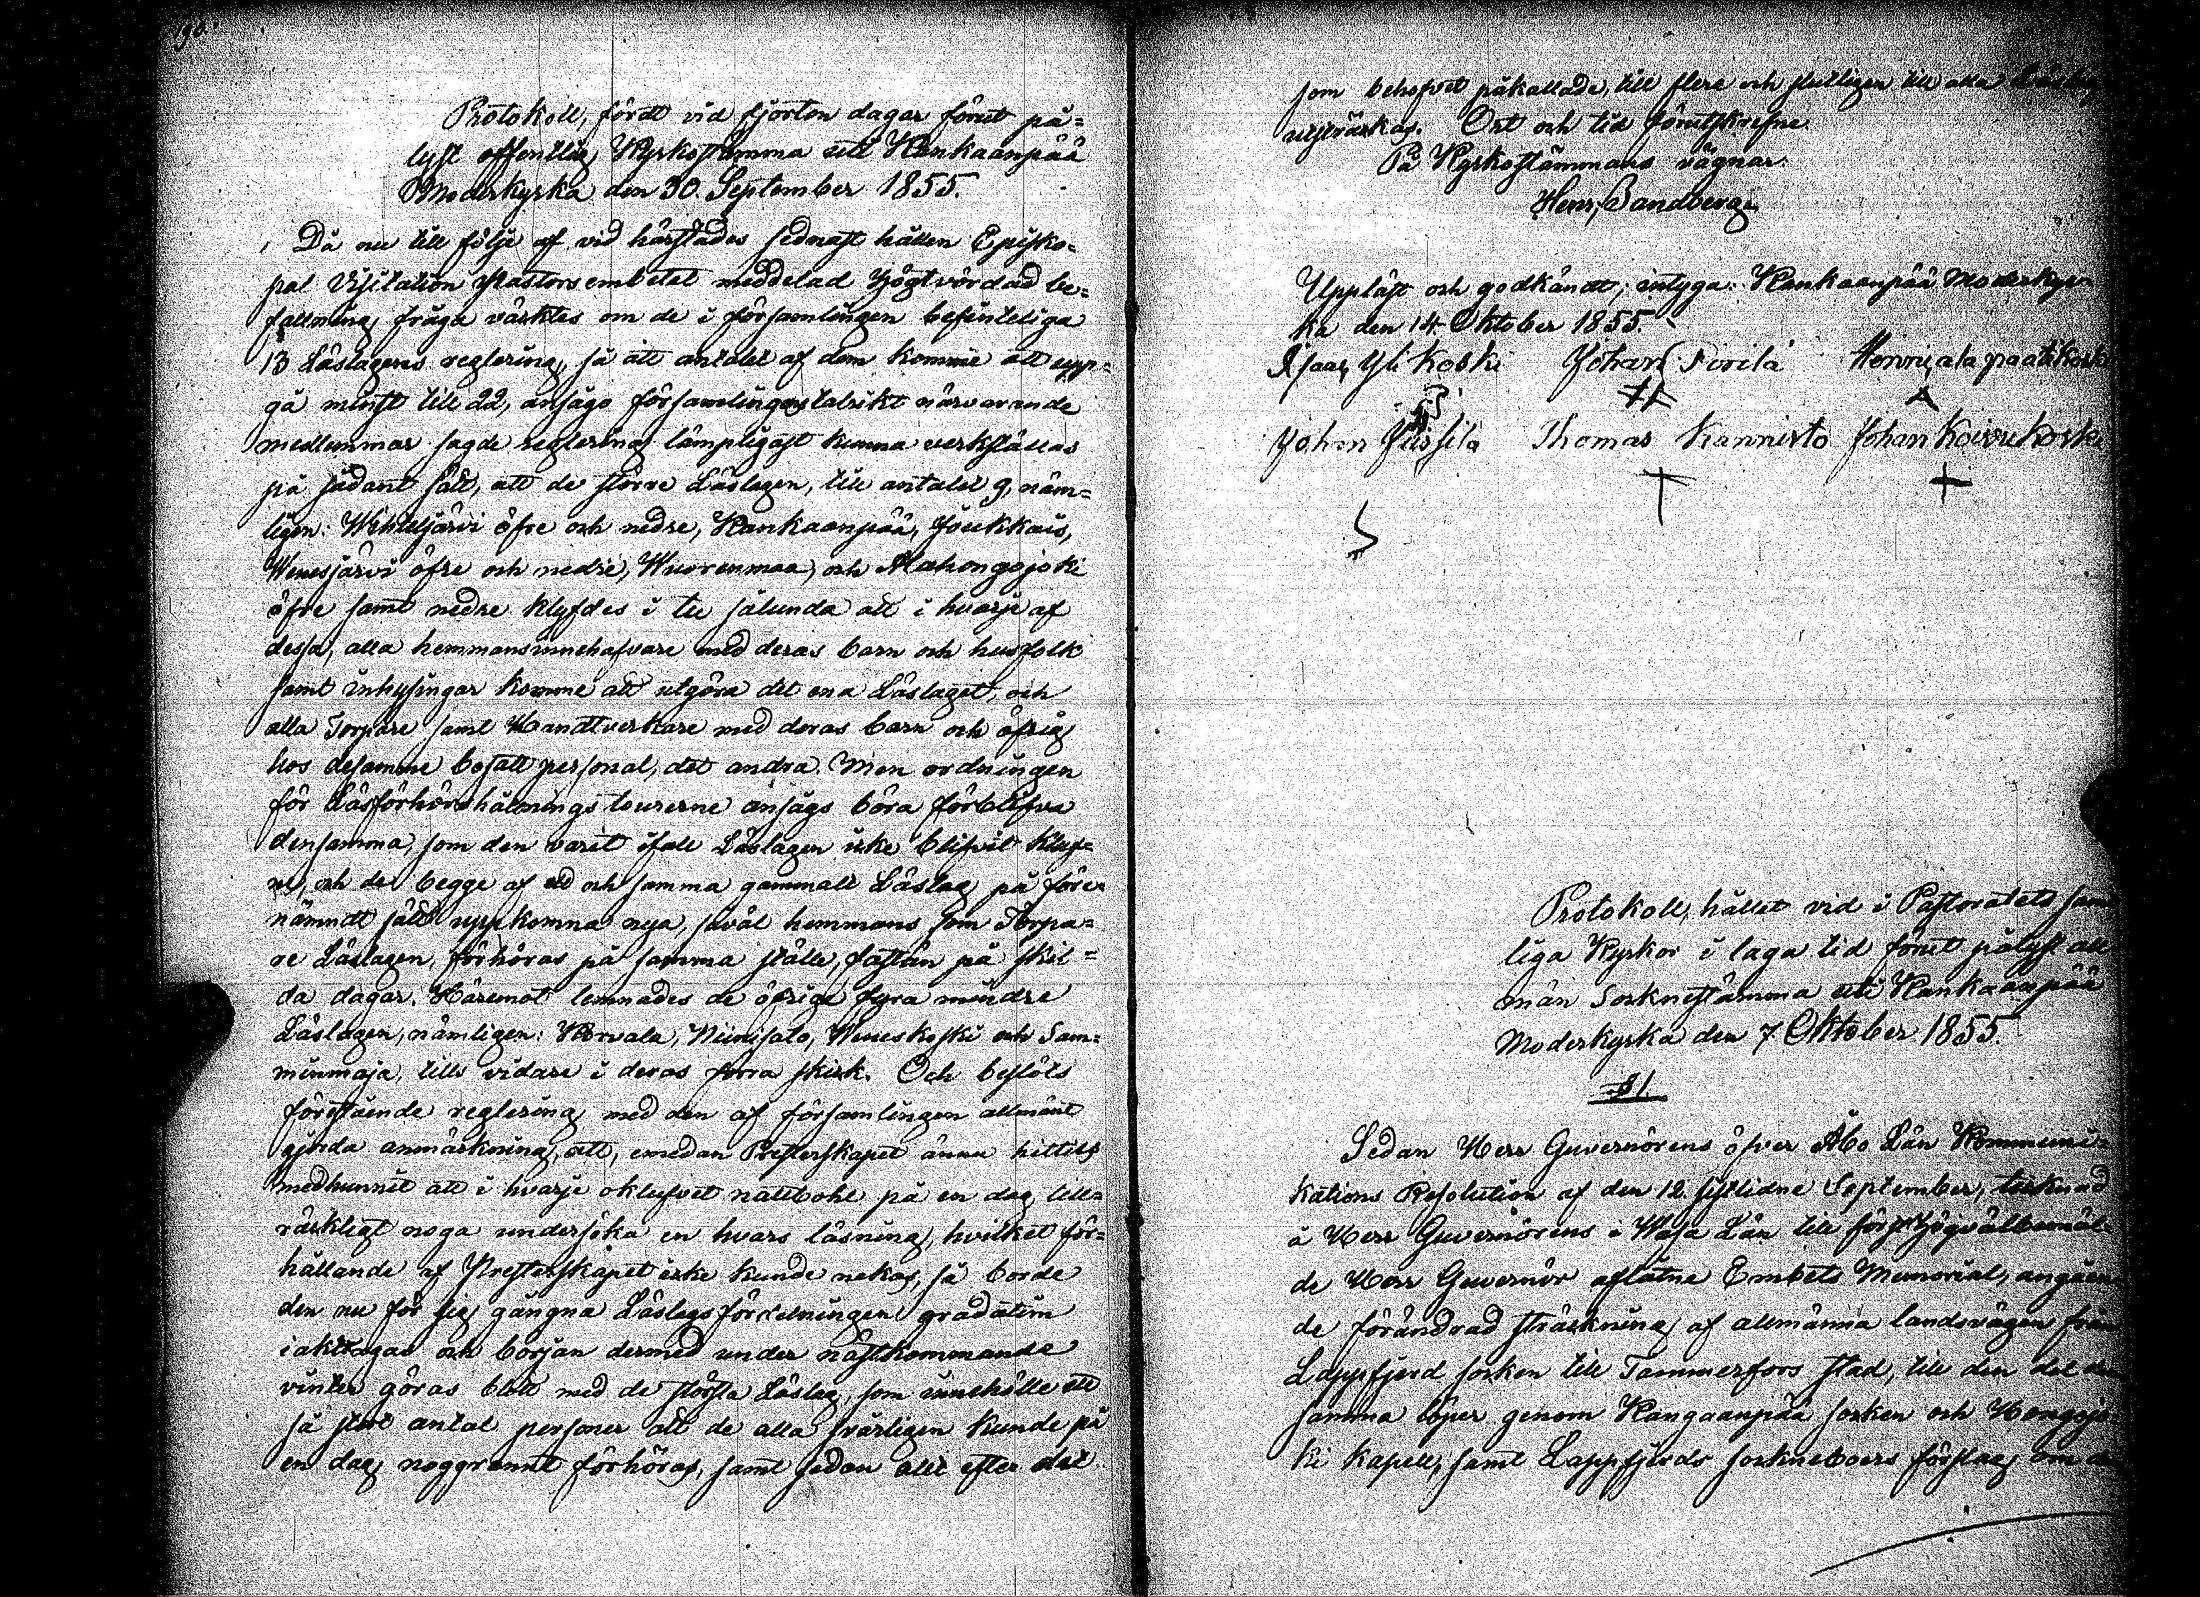 Protokoll, fördt vid fjorton dagar förut på=
lyst offentlig Kyrkostämma uti Kankaanpää
Moderkyrka den 30. September 1855.
Då nu till följe af vid härstädes sednast hållen Episko=
pal Visitation Pastorsembetet meddelad högtvördad be=
fallning fråga väcktes om de i församlingen befinteliga
13 Läslagens reglering, så att antalet af dem komme att upp=
gå minst till 22, ansågo församlingens talrikt närvarande
medlemmar sagde reglering lämpligast kunna verkställas
på sådant sätt, att de större Läslagen, till antalet 9, näm=
ligen: Wihteljärvi öfre och nedre, Kankaanpää, Jouckkais,
Wenesjärvi öfre och nedre, Wuorenmaa, och Ala Hongojoki
öfre samt nedre klyfdes i tu sålunda att i hvarje af
dessa, alla hemmansinnehafvare med deras barn och husfolk
samt inhysingar komme att utgöra det ena Läslaget, och
alla Torpare samt Handtverkare med deras barn och öfrig
hos desamme besatt personal, det andra. Men ordningen
för Läsförhörshållningstourerne ansågs böra förblifva
densamma, som den varit ifall Läslagen icke blifvit kluf=
ne, och de begge af ett och samma gammalt Läslag på före=
nämndt sätt uppkomna nya, såväl hemmans som Torpa=
re Läslagen, förhöras på samma ställe, fastän på skil=
da dagar. Häremot lemnades de öfriga fyra mindre
Läslagen, nämligen: Korvala, Niinisalo, Weneskoski och Sam=
minmaja, tills vidare i deras förra skick. Och beslöts
förestående reglering med den af församlingen allmänt
gjorda anmärkning, att, emedan Presterskapet ännu hittills
medhunnit att i hvarje oklufvet nattbohl på en dag till=
räckligt noga undersöka en hvars läsning, hvilket för=
hållande af Presterskapet icke kunde nekas, så borde
den nu för sig gångna Läslagsfördelningen gradatim
iakttagas och början dermed under nästkommande
vinter göras blott med de största Läslag, som innehölle ett
så stort antal personer att de alla svårligen kunde på
en dag noggrannt förhöras, samt sedan allt efter det
som behofvet påkallade, till flere och slutligen till alla
utsträckas. Ort och tid förutskrefne.
På Kyrkostämmans vägnar:
Henr. Sandberg.
Uppläst och godkändt; intyga: Kankaanpää Moderkyr=
ka den 14 Oktober 1855.
Isaac Yli Koski Johan Porila Henric ala paatikoski
Johan Jussila Thomas Kannisto Johan Koivukoski
Protokoll, hållet vid i Pastoratets sam
liga Kyrkor i laga tid förut pålyst all
män Socknestämma uti Kankaanpää
Moderkyrka den 7 Oktober 1855.
§1.
Sedan Herr Guvernörens öfver Åbo Län Kommuni=
kations Resolution af den 12 sistlidne September, tecknad
å Herr Guvernörens i Wasa Län till förste Högvälbemäl
de Herr Guvernör aflåtne Embets Memorial, angåen
de förändrad sträckning af allmänna landsvägen från
Lappfjerd socken till Tammerfors stad, till den del den
samma löper genom Kangaanpää socken och Hongojo
ki kapell, samt Lappfjerds sockneboers förslag om